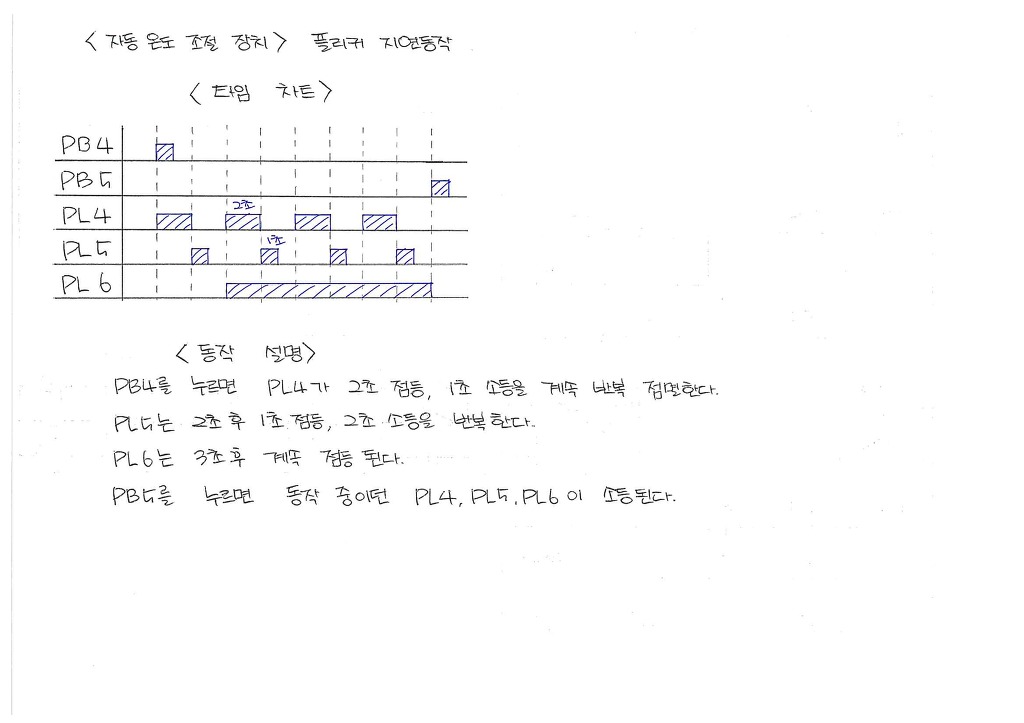 <자동 온도 조절 장치> 플리커 지연동작
<타임 차트>
PB4
PB5
PL4 2초
PL5 1초
PL6
<동작 설명>
PB4를 누르면 PL4가 2초 점등, 1초 소등을 계속 반복 점멸한다.
PL5는 2초 후 1초 점등, 2초 소등을 반복한다.
PL6는 3초후 계속 점등 된다.
PB5를 누르면 동작 중이던 PL4, PL5, PL6이 소등된다.